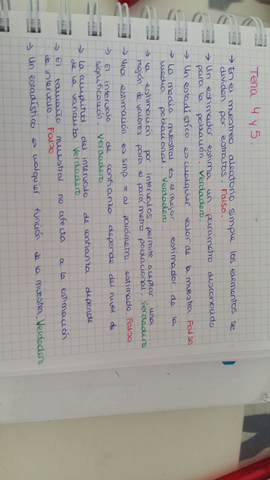 Tema 4 y 5
→ En el muestreo aleatorio simple los elementos se
dividen por estratos. Falso.
→ Un estimador estima un parámetro desconocido
para la población Verdadero
→ Un estadístico es cualquier valor de la muestra Falso
→ La media muestral es el mejor estimador de la
media poblacional Verdadero
→ La estimación por intervalos permite aceptar una
región de valores para el parámetro poblacional. Verdadero
→ Una estimación es simp = al parámetro estimado Falso
→ El intervalo de confianza depende del nivel de
significación Verdadero
→ La amplitud del intervalo de confianza depende
de la varianza Verdadero
→ El tamaño muestral no afecta a la estimación
de intervalo Falso
→ Un estadístico es cualquier función de la muestra. Verdadero